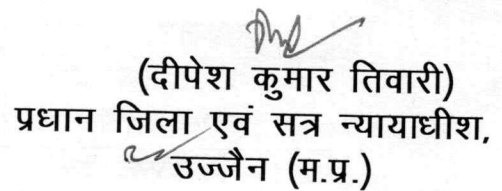 (दीपेश कुमार तिवारी)
प्रधान जिला एवं सत्र न्यायाधीश,
उज्जैन (म.प्र.)